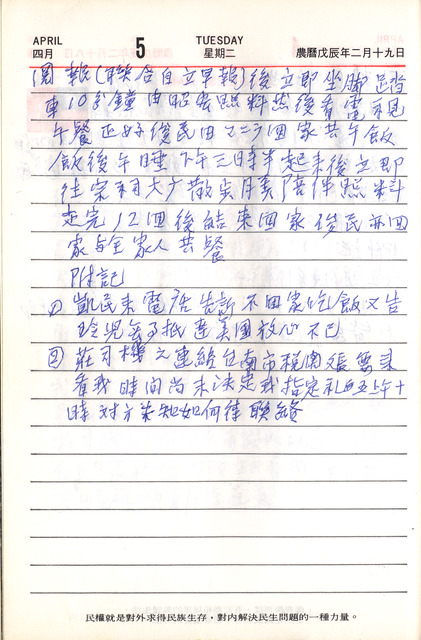 APRIL
四月
5
TUESDAY
星期二
農曆戊辰年二月十九日
週報(聯合自立早報)後立即坐腳踏
車10分鐘由昭安照料然後看電視
午餐正好俊民由乙二方回家共午飯
飯後午睡下午三時半起來後立即
往宋相大厂散步月美陪伴照料
走完12回後結束回家俊民亦回
家與全家人共餐
附記
① 凱民來電話告訴不回家吃飯又告
玲兒安了抵達美國放心不已
② 莊司機之連絡台南市稅關張要來
看我時間尚未決定我指定礼白五上午十
時對方未知如何待聯絡
民權就是對外求得民族生存，對內解決民生問題的一種力量。